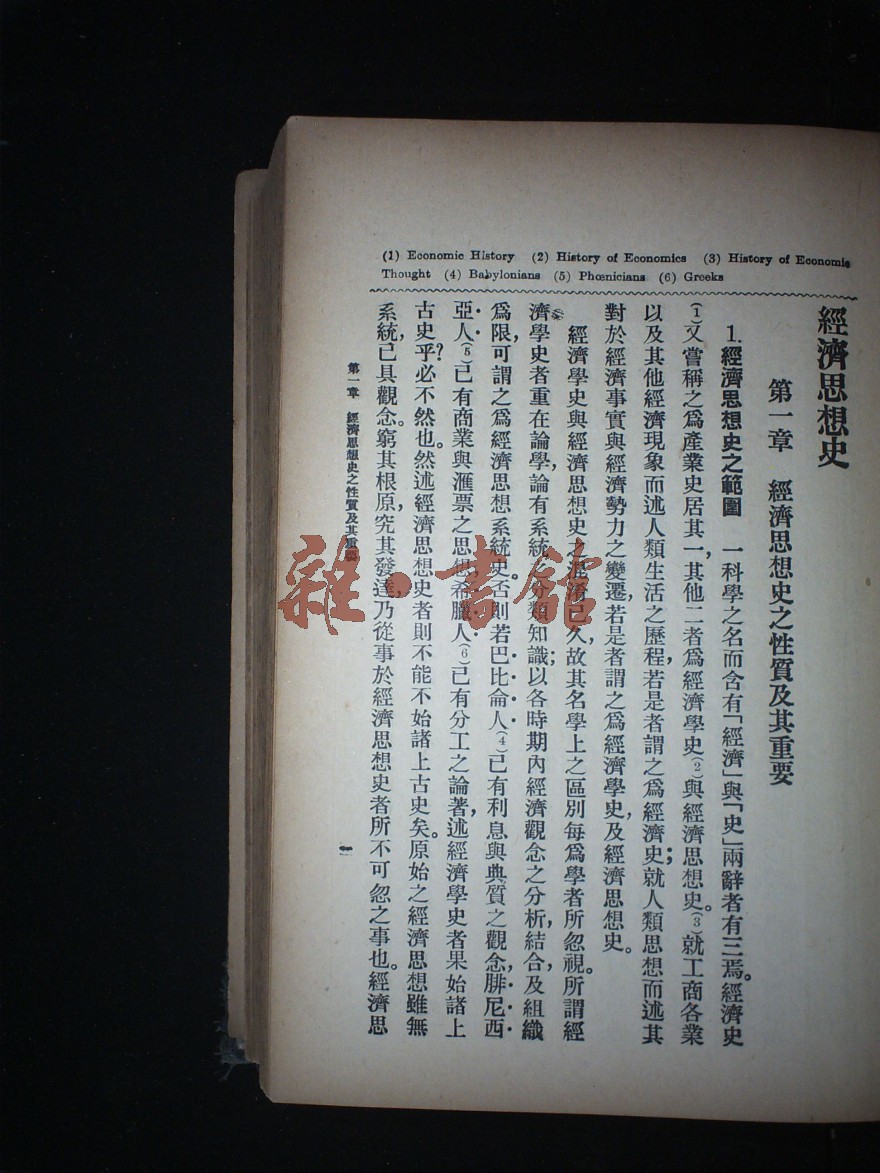 (1) Economic History (2) History of Economics (3) History of Economic
Thought (4) Babylonians (5) Phœnicians (6) Greeks
經濟思想史
第一章 經濟思想史之性質及其重要
1. 經濟思想史之範圍 一科學之名而含有「經濟」與「史」兩辭者有三焉。經濟史
(1)又嘗稱之爲產業史居其一,其他二者爲經濟學史(2)與經濟思想史。(3)就工商各業
以及其他經濟現象而述人類生活之歷程,若是者謂之爲經濟史;就人類思想而述其
對於經濟事實與經濟勢力之變遷,若是者謂之爲經濟學史,及經濟思想史。
經濟學史與經濟思想史之混淆已久,故其名學上之區別每爲學者所忽視。所謂經
濟學史者重在論學,論有系統之分類知識;以各時期內經濟觀念之分析,結合,及組織
爲限,可謂之爲經濟思想系統史。否則若巴比侖人(4)已有利息與典質之觀念,腓尼西
亞人(5)已有商業與滙票之思想,希臘人(6)已有分工之論著,述經濟學史者果始諸上
古史乎?必不然也。然述經濟思想史者則不能不始諸上古史矣。原始之經濟思想雖無
系統,已具觀念。窮其根原,究其發達,乃從事於經濟思想史者所不可忽之事也。經濟思
第一章 經濟思想史之性質及其重要
一
雜·書館